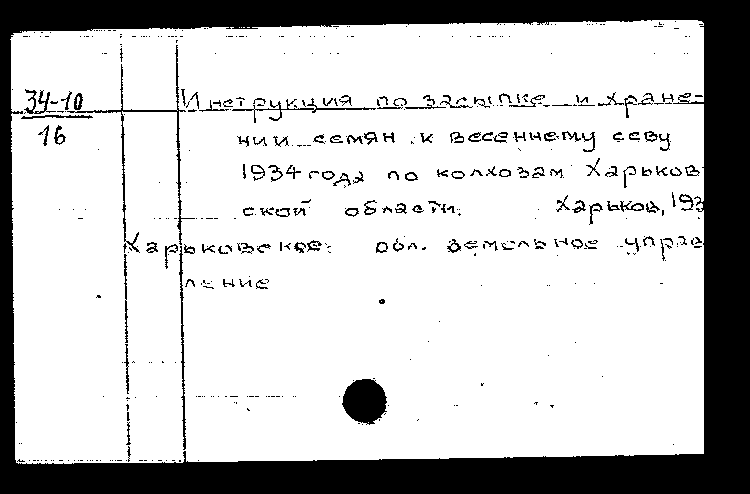 34-10
16
Инструкция по засыпке и хране-
нии семян к весеннему севу
1934 года по колхозам Харьков-
ской области. Харьков, 193
Харьковское обл. земельное управ
ление